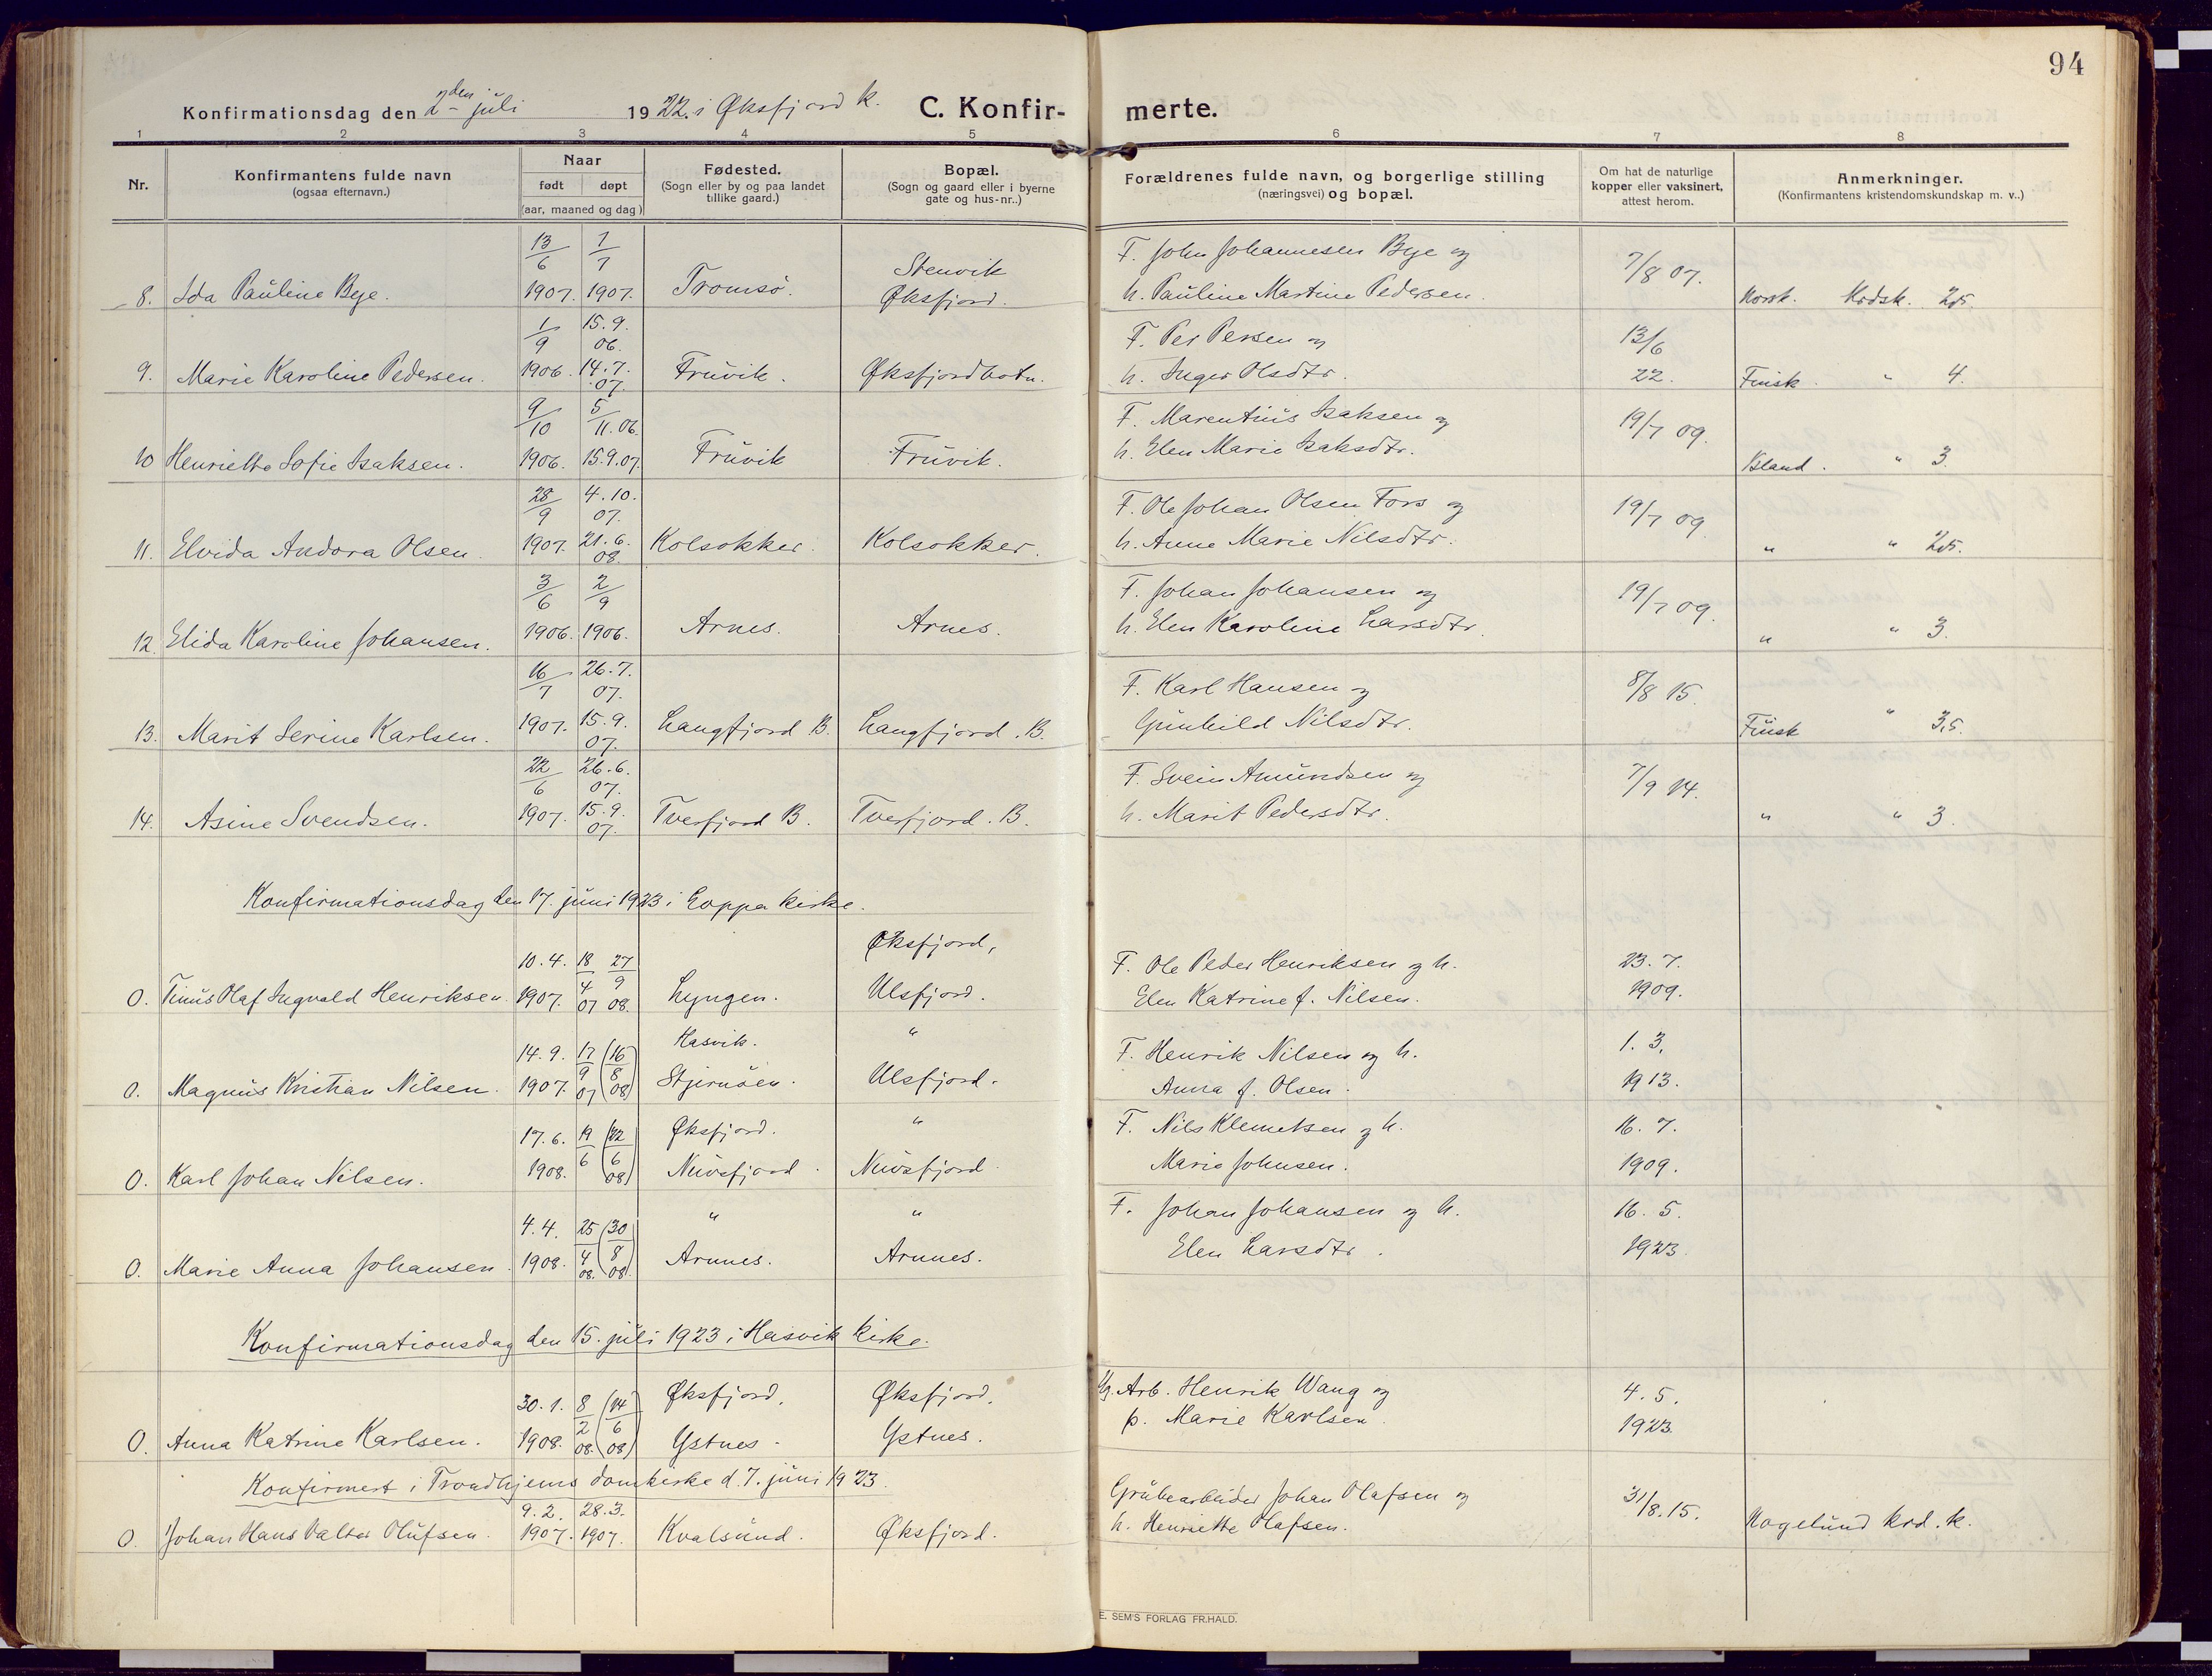 94
Konfirmationsdag den 2den juli 1922. i Øksfjord k. C. Konfir- merte.
1 2 3 4 5 6 7 8
Nr. Konfirmantens fulde navn (ogsaa efternavn.) Naar født døpt (aar, maaned og dag) Fødested. (Sogn eller by og paa landet tillike gaard.) Bopæl. (Sogn og gaard eller i byerne gate og hus-nr..) Forældrenes fulde navn, og borgerlige stilling (næringsvei) og bopæl. Om hat de naturlige kopper eller vaksinert, attest herom. Anmerkninger. (Konfirmantens kristendomskundskap m. v..)
13/6 7/7 Stenvik F. John Johannesen Bye og 7/8 07.
8. Ida Pauline Bye. 1907. 1907. Tromsø. Øksfjord. h. Pauline Martine Pedersen. Norsk. Krdsk. 2,5.
1/9 15.9. 06. F. Per Persen og 13/6
9. Marie Karoline Pedersen. 1906. 14.7. 07. Fruvik. Øksfjordbotn. h. Inger Olsdtr. 22. Finsk. " 4.
9/10 5/11.06. F. Marentius Isaksen og 19/7 09.
10 Henriette Sofie Isaksen. 1906. 15.9.07. Fruvik Fruvik. h. Elen Marie Isaksdtr. Bland. " 3.
28/9 4.10. 07. F. Ole Johan Olsen Fors og 19/7 09
11. Elvida Andora Olsen. 1907. 21.6. 08. Kolsokker. Kolsokker. h. Anne Marie Nilsdtr. " " 2,5.
3/6 2/9 F. Johan Johansen og 19/7 09.
12. Elida Karoline Johansen. 1906. 1906. Arnes. Arnes. h. Elen Karoline Larsdtr. " " 3.
16/7 26.7. 07. F. Karl Hansen og 8/8 15.
13. Marit Serine Karlsen. 1907. 15.9. 07. Langfjord B. Langfjord. B. Gunhild Nilsdtr. Finsk " 3,5.
22/6 26.6. 07. F. Svein Amundsen og 7/9 14.
14. Asine Svendsen. 1907. 15.9. 07. Tverfjord B. Tverfjord. B. h. Marit Pedersdtr. " " 3.
Konfirmationsdag den 17. juni 1923 i Loppa kirke.
10.4. 18/4 27/9 Øksfjord, F. Ole Peder Henriksen og h. 23. 7.
0. Tinus Olaf Ingvald Henriksen. 1907. 07 08. Lyngen. Ulsfjord. Elen Katrine f. Nilsen. 1909.
14.9. 17/9 (16/8 Hasvik. " F. Henrik Nilsen og h. 1. 3.
0. Magnus Kristian Nilsen. 1907. 07 08) Stjernøen. Ulsfjord. Anna f. Olsen. 1913.
17.6. 19/6 (22/6 Øksfjord. " F. Nils Klemetsen og h. 16. 7.
0. Karl Johan Nilsen. 1908. 08) Nuvsfjord. Nuvsfjord. Marie Johnsen. 1909.
4.4. 25/4 (30/8 " " F. Johan Johansen og h. 16. 5.
0. Marie Anna Johansen. 1908. 08. 08) Arnnes. Arnnes. Elen Larsdtr. 1923.
Konfirmationsdag den 15. juli 1923 i Hasvik kirke.
30.1. 8/2 (14/6 Øksfjord. Øksfjord. Ug. Arb. Henrik Wang og 4. 5.
0. Anna Katrine Karlsen. 1908. 08. 08) Ystnes. Ystnes. p. Marie Karlsen. 1923.
Konfirmert i Trondhjems domkirke d. 7. juni 1923.
9.2. 28.3. Grubearbeider Johan Olafsen og 31/8.15.
0. Johan Hans Valter Olufsen. 1907. 1907. Kvalsund. Øksfjord. h. Henriette Olafsen. Hogelund krd. k.
E. SEM'S FORLAG FR.HALD.